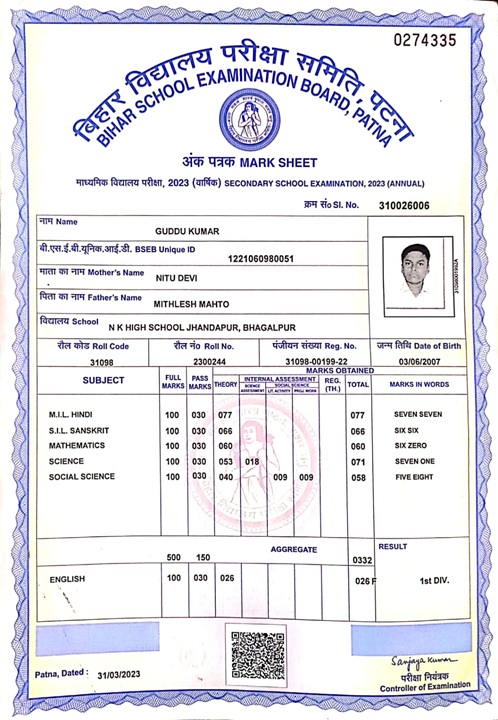 0274335
बिहार विद्यालय परीक्षा समिति, पटना
BIHAR SCHOOL EXAMINATION BOARD, PATNA
अंक पत्रक MARK SHEET
माध्यमिक विद्यालय परीक्षा, 2023 (वार्षिक) SECONDARY SCHOOL EXAMINATION, 2023 (ANNUAL)
क्रम सं० Sl. No. 310026006
नाम Name
GUDDU KUMAR
बी.एस.ई.बी.यूनिक.आई.डी. BSEB Unique ID
1221060980051
माता का नाम Mother's Name
NITU DEVI
पिता का नाम Father's Name
MITHLESH MAHTO
विद्यालय School
N K HIGH SCHOOL JHANDAPUR, BHAGALPUR
रौल कोड Roll Code रौल नं० Roll No. पंजीयन संख्या Reg. No. जन्म तिथि Date of Birth
31098 2300244 31098-00199-22 03/06/2007
MARKS OBTAINED
SUBJECT FULL MARKS PASS MARKS THEORY INTERNAL ASSESSMENT REG. (TH.) TOTAL MARKS IN WORDS
SCIENCE ASSESSMENT SOCIAL SCIENCE LIT. ACTIVITY PROJ. WORK
M.I.L. HINDI 100 030 077 077 SEVEN SEVEN
S.I.L. SANSKRIT 100 030 066 066 SIX SIX
MATHEMATICS 100 030 060 060 SIX ZERO
SCIENCE 100 030 053 018 071 SEVEN ONE
SOCIAL SCIENCE 100 030 040 009 009 058 FIVE EIGHT
AGGREGATE RESULT
500 150 0332
ENGLISH 100 030 026 026 F 1st DIV.
Patna, Dated : 31/03/2023
Sanjaya Kumar
परीक्षा नियंत्रक
Controller of Examination